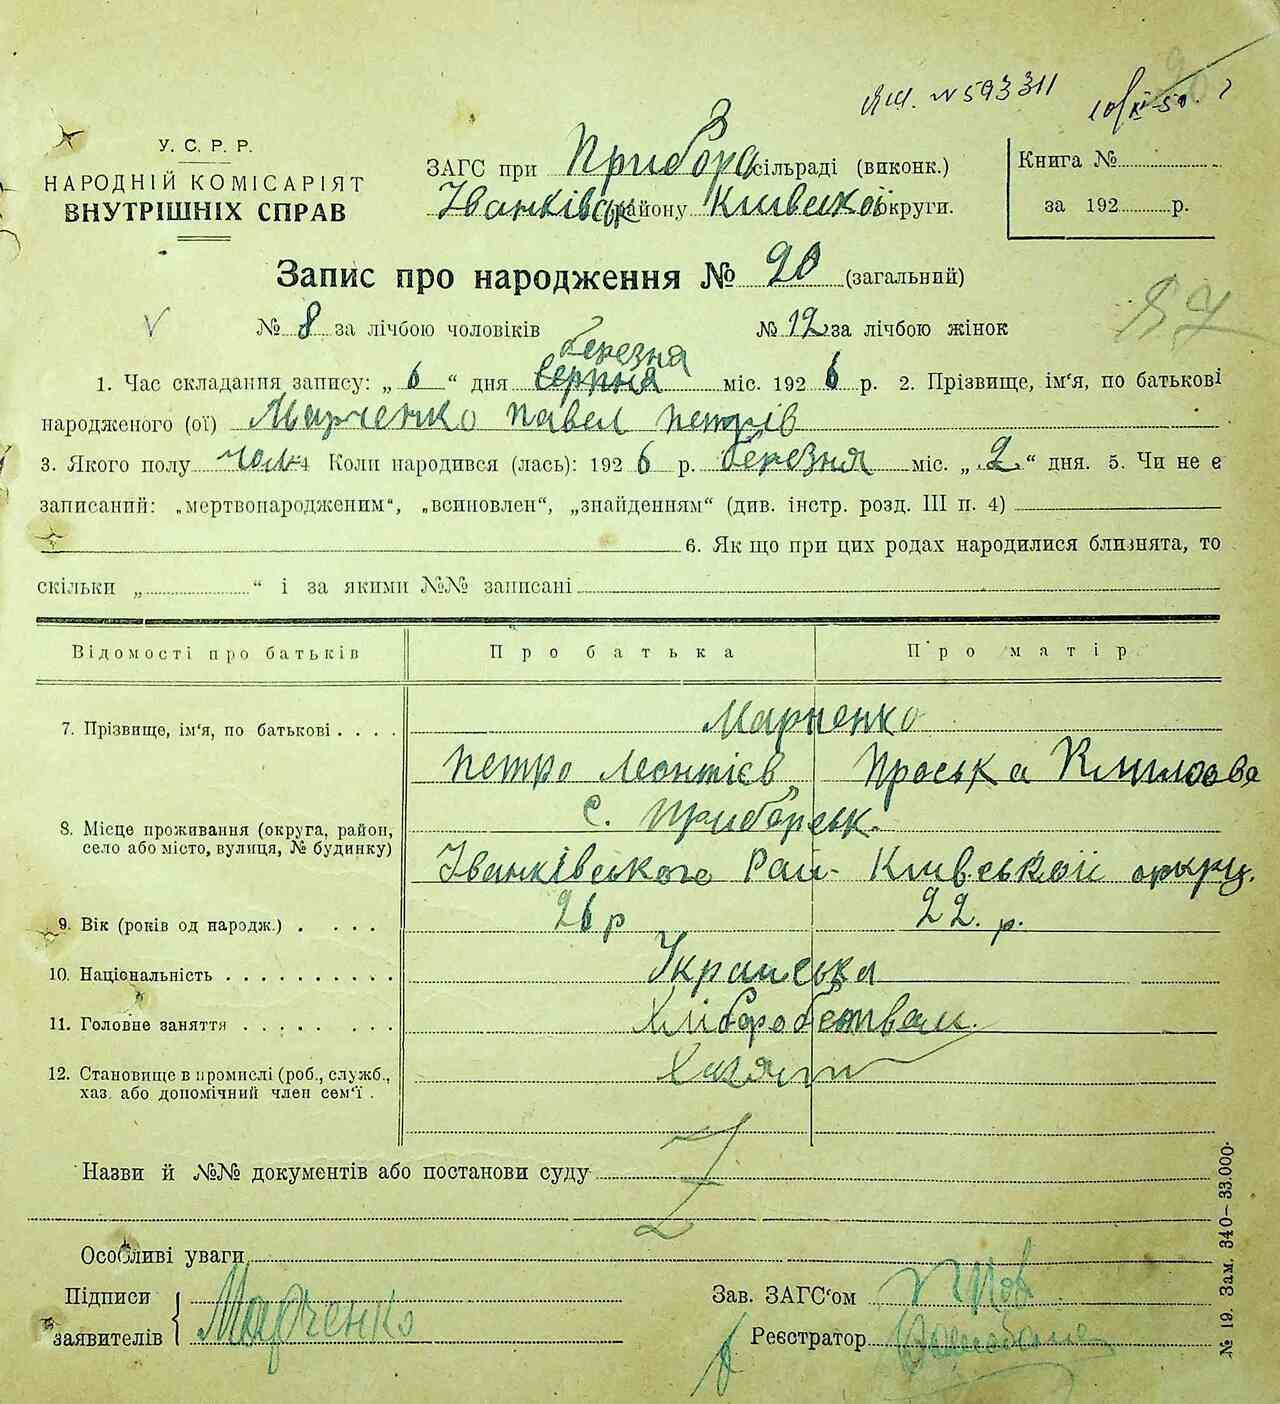 ЯЩ. № 593311
10/XI-50.
У. С. Р. Р.
НАРОДНІЙ КОМІСАРІЯТ
ВНУТРІШНІХ СПРАВ
ЗАГС при Прибор сільраді (виконк.)
Іванківськ району Київської округи.
Книга №
за 192 р.
Запис про народження № 20 (загальний)
№ 8 за лічбою чоловіків № 12 за лічбою жінок
березня
1. Час складання запису: „ 6 “ дня серпня міс. 192 6 р. 2. Прізвище, ім‘я, по батькові
народженого (ої) Марченко Павел Петрів
3. Якого полу чол. 4 Коли народився (лась): 192 6 р. березня міс. „ 2 “ дня. 5. Чи не є
записаний: „мертвонародженим“, „всиновлен“, „знайденням“ (див. інстр. розд. III п. 4)
6. Як що при цих родах народилися близнята, то
скільки „ “ і за якими №№ записані
Відомості про батьків Про батька Про матір
7. Прізвище, ім‘я, по батькові Марченко
Петро Леонтієв Проська
8. Місце проживання (округа, район, село або місто, вулиця, № будинку) с. Приборськ.
Іванківського Рай- Київської округ.
9. Вік (років од народж.) 26 р 22. р.
10. Національність Українська
11. Головне заняття Хліборобством.
12. Становище в промислі (роб., служб., хаз. або допомічний член сем‘ї .
Назви й №№ документів або постанови суду
Особливі уваги
Підписи
заявителів Марченко
Зав. ЗАГС‘ом
Реєстратор
№ 19. Зам. 340—33.000.